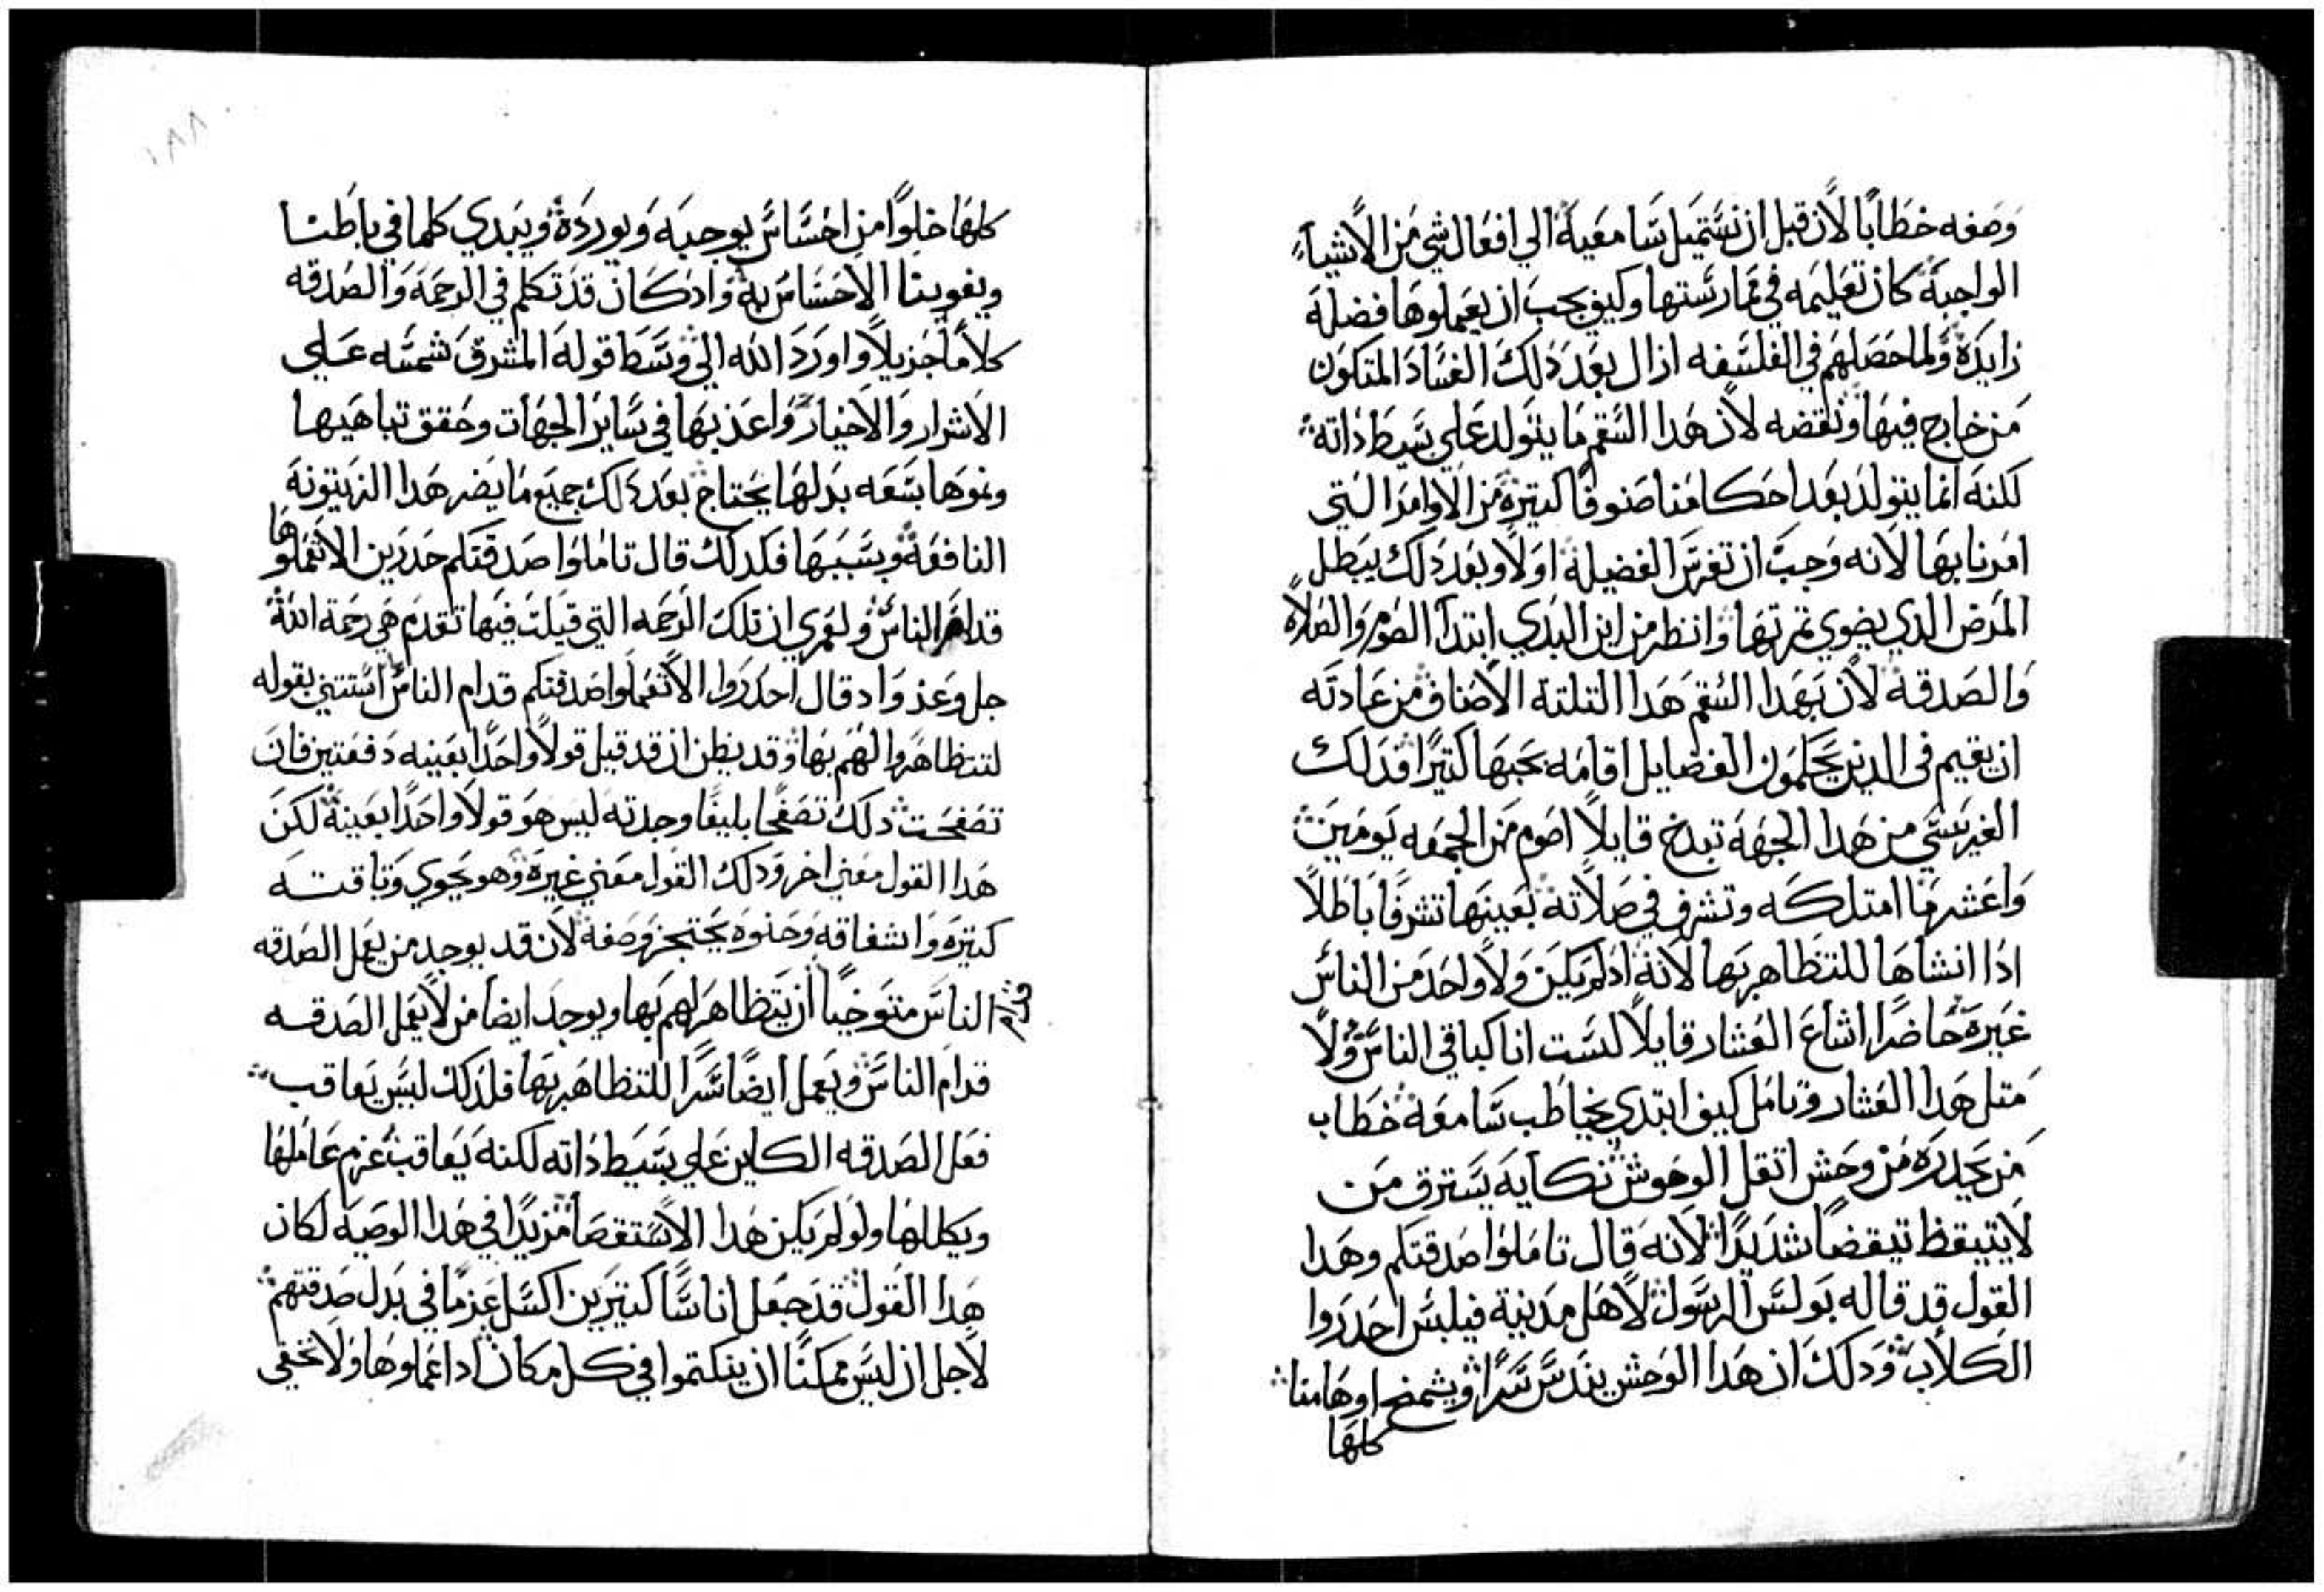 وصفه خطابا لان قبل ان نستميل سامعية الي افعال شي من الاشياء
الواجبة كان تعليمه في ممارستها وكيف يجب ان يعملوها فضلة
زايدة ولما حصلهم في الفلسفه ازال بعد ذلك الفساد المتكون
من خارج فيها ونقضه لان هدا السقم ما يتولد علي بسيط داته
لكنه انما يتولد بعد احكامنا صنوفا كتيرة من الاوامر التي
امرنا بها لانه وجب ان تغرس الفضيلة اولا وبعد دلك يبطل
المرض الدي يضوي تمرتها وانظر من اين البدي ابتدا الصوم والصلاة
والصدقة لان بهدا السقم هدا التلتة الاصناف من عادته
ان يقيم في الدين يحكمون الفضايل اقامه يحبها كتيرا فدلك
الفريسي من هدا الجهة تبدخ قايلا اصوم من الجمعه يومين
واعشر ما امتلكه وتشرف في صلاته بعينها تشرفا باطلا
ادا انشاها للتظاهر بها لانه اد لم يكن ولا واحد من الناس
غيره حاضرا اشاع العشار قايلا لست انا كباقي الناس ولا
متل هدا العشار وتامل كيف ابتدي يخاطب سامعة خطاب
من يحدره من وحش اتقل الوحوش نكايه يسترق من
لا يتيقظ تيقضا شديدا لانه قال تاملوا صدقتكم وهدا
القول قد قاله بولس الرسول لاهل مدينة فيلبس احدروا
الكلاب ودلك ان هدا الوحش يندس سرا ويشمخ اوهامنا
كلها
١٨٨
كلها خلوا من احساس يوجبه ويورده ويبدي كلما في باطنا
ويفوينا الاحساس به واد كان قد تكلم في الرحمة والصدقه
كلاما جزيلا واورد الله الي وسط قوله المشرق شمسه علي
الاشرار والاخيار واعذبها في ساير الجهات وحقق تباهيها
ونموها بسعه بدلها يحتاج بعد دلك جميع ما يضر هدا الزيتونة
النافعة ويسببها فكدلك قال تاملوا صدقتكم حدرين الا تعملوها
قدام الناس ولعمري ان تلك الرحمه التي قيلت فيها تقدم هي رحمة الله
جل وعز واد قال احدروا الا تعملوا صدقتكم قدام الناس استتني بقوله
لتتظاهروا لهم بها وقد يظن ان قد قيل قولا واحدا بعينه دفعتين فان
تصفحت دلك تصفحا بليغا وجدته ليس هو قولا واحدا بعينة لكن
هدا القول معني اخر ودلك القول معني غيره وهو يحوي وتاقته
كتيره واشفاقه وحنوه يحتجز وصفه لان قد يوجد من يعمل الصدقه
قدام الناس متوخيا ان يتظاهر لهم بها ويوجد ايضا من لا يعمل الصدقه
قدام الناس ويعمل ايضا سرا للتظاهر بها فلدلك ليس يعاقب
فعل الصدقه الكاين علي بسيط داته لكنه يعاقب عزم عاملها
ويكللها ولو لم يكن هدا الاستقصا مزيدا في هدا الوصيه لكان
هدا القول قد جعل اناسا كتيرين اكسل عزما في بدل صدقتهم
لاجل ان ليس ممكنا ان ينكتموا في كل مكان ادا عملوها ولا تخفي